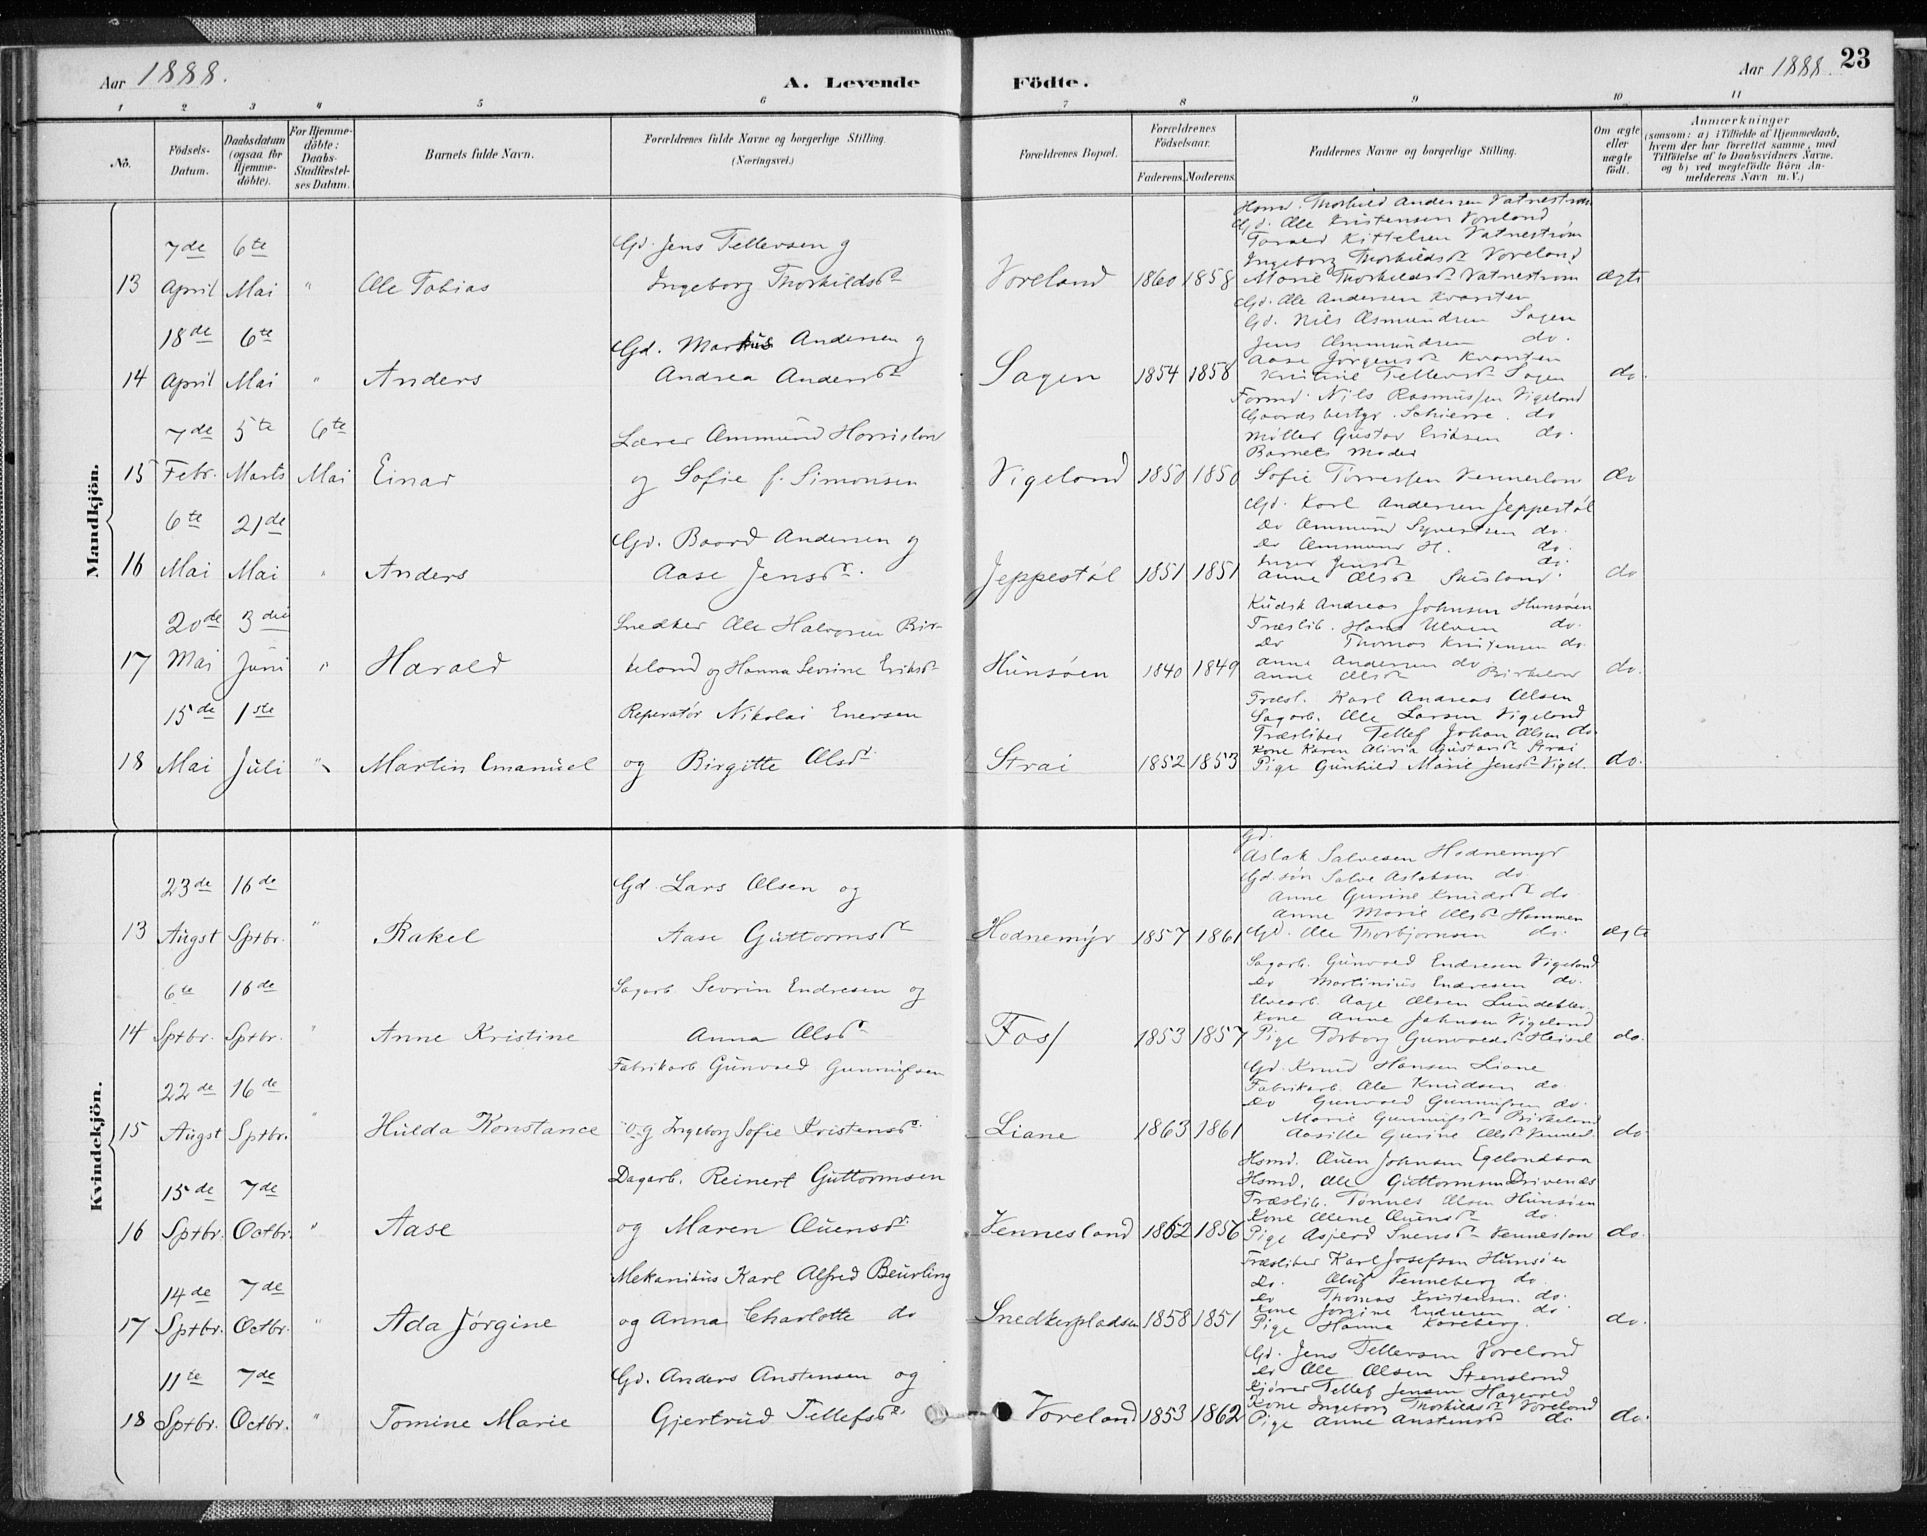 Aar 1888.
A. Levende Födte.
Aar 1888. 23
1 2 3 4 5 6 7 8 9 10 11
No.
Födsels-Datum.
Daabsdatum (ogsaa för Hjemme-döbte).
For Hjemme-döbte: Daabs-Stadfæstel-ses Datum.
Barnets fulde Navn.
Forældrenes fulde Navne og borgerlige Stilling. (Næringsvei.)
Forældrenes Bopæl.
Forældrenes Födselsaar.
Faderens. Moderens.
Faddernes Navne og borgerlige Stilling.
Om ægte eller uægte födt.
Anmærkninger
(saasom: a) i Tilfælde af Hjemmedaab,
hvem der har forrettet samme, med
Tilföielse af to Daabsvidners Navne,
og b) ved uægtefödte Börn An-
melderens Navn m. V.)
Mandkjön.
13 7de April 6te Mai " Ole Tobias
Gd. Jens Tellevsen og
Ingeborg Thorkildsdr
Voreland 1860 1858
Hsmd. Thorkild Andersen Vatnestrøm
Gd. Ole Kristensen Voreland
Torald Kittelsen Vatnestrøm
Ingeborg Thorkildsdr Voreland
Marie Thorkildsdr Vatnestrøm
ægte
14 18de April 6te Mai " Anders
Gd. Markus Andersen og
Andrea Andersdr
Sagen 1854 1858
Gd. Ole Andersen Kvarsten
Gd. Nils Osmundsen Sagen
Jens Ommundsen do.
Aase Jørgensdr Kvarsten
Kristine Tellevsdr Sagen
do.
15 7de Febr. 5te Marts 6te Mai Einar
Lærer Ommund Horrisland
og Sofie f. Simonsen
Vigeland 1850 1850
Formd. Nils Rasmussen Vigeland
Gaardsbestyr. Schierre. do
Møller Gustav Eriksen do.
Barnets Moder
Sofie Torressen Venneslan
do
16 6te Mai 21de Mai " Anders
Gd. Baard Andersen og
Aase Jensdr.
Jeppestøl 1851 1851
Gd. Karl Andersen Jeppestøl
Do Ommund Syvertsen do.
Do Ommund H. do.
Inger Jensdr do.
Anne Olsdr Skisland.
do
17 20de Mai 3die Juni " Harald
Snedker Ole Halvorsen Bir-
keland og Hanna Sevrine Eriksdr
Hunsøen 1840 1849
Kudsk Andreas Johnsen Hunsøen
Træslib. Hans Ulven do.
Do Thomas Kristensen do.
Anne Andersen do
Anne Olsdr Birkelan
do.
18 15de Mai 1ste Juli " Martin Emanuel
Reperatør Nikolai Enersen
og Birgitte Olsdr.
Strai 1852 1853
Træsl. Karl Andreas Olsen
Sagarb. Ole Larsen Vigeland
Træsliber Tellef Johan Olsen do.
Kone Karen Olivia Gustavsdr Strai
Pige Gunhild Marie Jensdr Vigel.
do.
Kvindekjön.
13 23de Augst 16de Sptbr. " Rakel
Gd. Lars Olsen og
Aase Guttormsdr
Hodnemyr 1857 1861
Gd.
Aslak Salvesen Hodnemyr
Gd.søn Salve Aslaksen do
Anne Gurine Knudsdr do
Anne Marie Olsdr Hommen
Gd. Ole Thorbjørnsen do.
ægte
14 6te Sptbr. 16de Sptbr. " Anne Kristine
Sagarb. Sevrin Endresen og
Anna Olsdr
Foss 1853 1857
Sagarb. Gunvald Endresen Vigeland
Do Martinius Endresen do.
Elvearb. Aage Olsen Lundekler
Kone Anne Johnsen Vigeland
Pige Torborg Gunvaldsdr Heisel
do.
15 22de Augst 16de Sptbr. " Hulda Konstance
Fabrikarb. Gunvald Gunnufsen
og Ingeborg Sofie Kristensdr.
Liane 1863 1861
Gd. Knud Hansen Liane
Fabrikarb. Ole Knudsen do.
Do Gunvald Gunnufsen do.
Marie Gunnufsdr Birkeland
Aasille Gurine Olsdr Vennesl.
do
16 15de Sptbr. 7de Octbr. " Aase
Dagarb. Reinert Guttormsen
og Maren Ouensdr.
Vennesland 1862 1856
Hsmd. Ouen Johnsen Egelandsaa
Hsmd. Ole Guttormsen Drivenæs
Træslib. Tønnes Olsen Hunsøen
Kone Olene Ouensdr do.
Pige Asjerd Svensdr Venneslan
do.
17 14de Sptbr. 7de Octbr. " Ada Jørgine
Mekanikus Karl Alfred Beurling
og Anna Charlotte do
Snedkerpladsen 1858 1851
Træsliber Karl Josefsen Hunsøen
Do. Oluf Venneberg do.
Do Thomas Kristensen do.
Kone Jorgine Endresen do.
Pige Hanna Kareberg.
do.
18 11te Sptbr. 7de Octbr. " Tomine Marie
Gd. Anders Anstensen og
Gjertrud Tellefsdr.
Voreland 1853 1862
Gd. Jens Tellevsen Voreland
Do Ole Olsen Stensland
Kjører Tellef Jensen Hagevold
Kone Ingeborg Thorkildsdr Voreland
Pige Anne Anstensdr do
do.